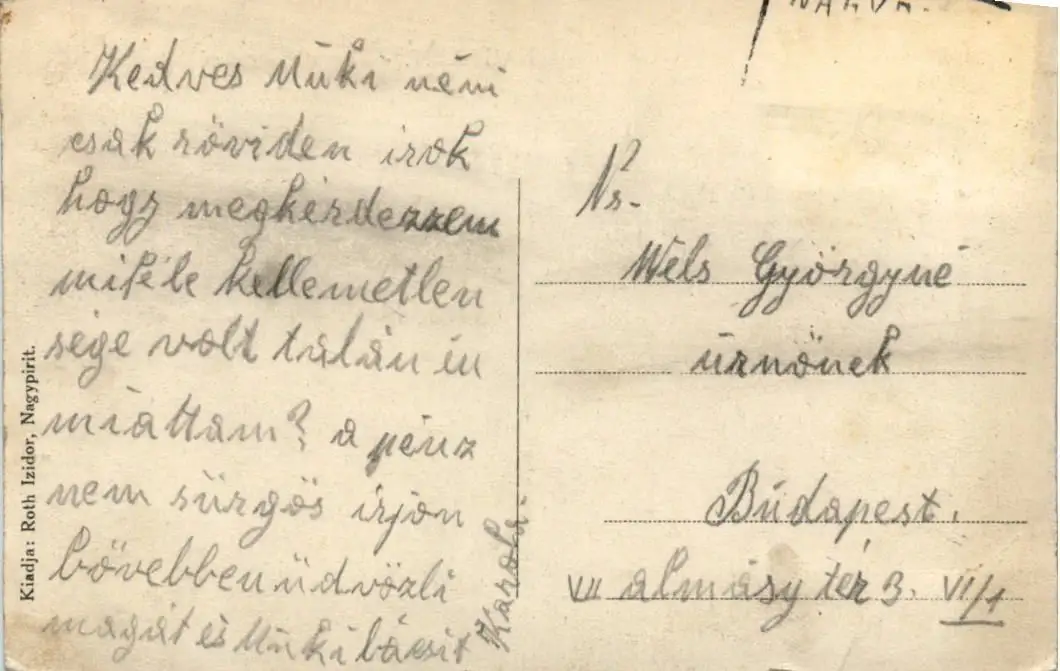 Kedves Muki néni
csak röviden irok
hogy megkérdezzem
miféle kellemetlen
sége volt talán én
miattam? a pénz
nem sürgös irjon
bövebben üdvözli
magát és Muki bácsit
Karola.
Kiadja: Roth Izidor, Nagypirit.
Ns.
Wels Györgyné
úrnönek
Budapest.
VII almásy tér 3. VI/1